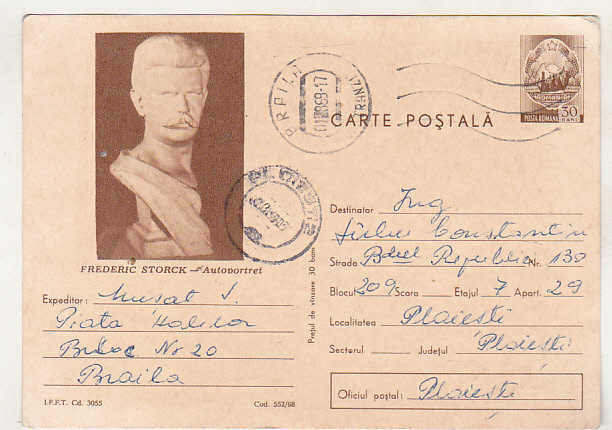 FREDERIC STORCK — Autoportret
Expeditor: Musat I.
Piata Halelor
Bloc Nr 20
Braila
I.P.F.T. Cd. 3055
Cod. 552/68
Prețul de vînzare 30 bani
BRAILA
CARTE POȘTALĂ
POSTA ROMANA
30
BANI
PLOIESTI
Destinatar Ing
Constantin
Strada Bdul Republicii Nr. 130
Blocul 209 Scara Etajul 7 Apart. 29
Localitatea Ploiesti
Sectorul Județul Ploiesti
Oficiul poștal: Ploiesti